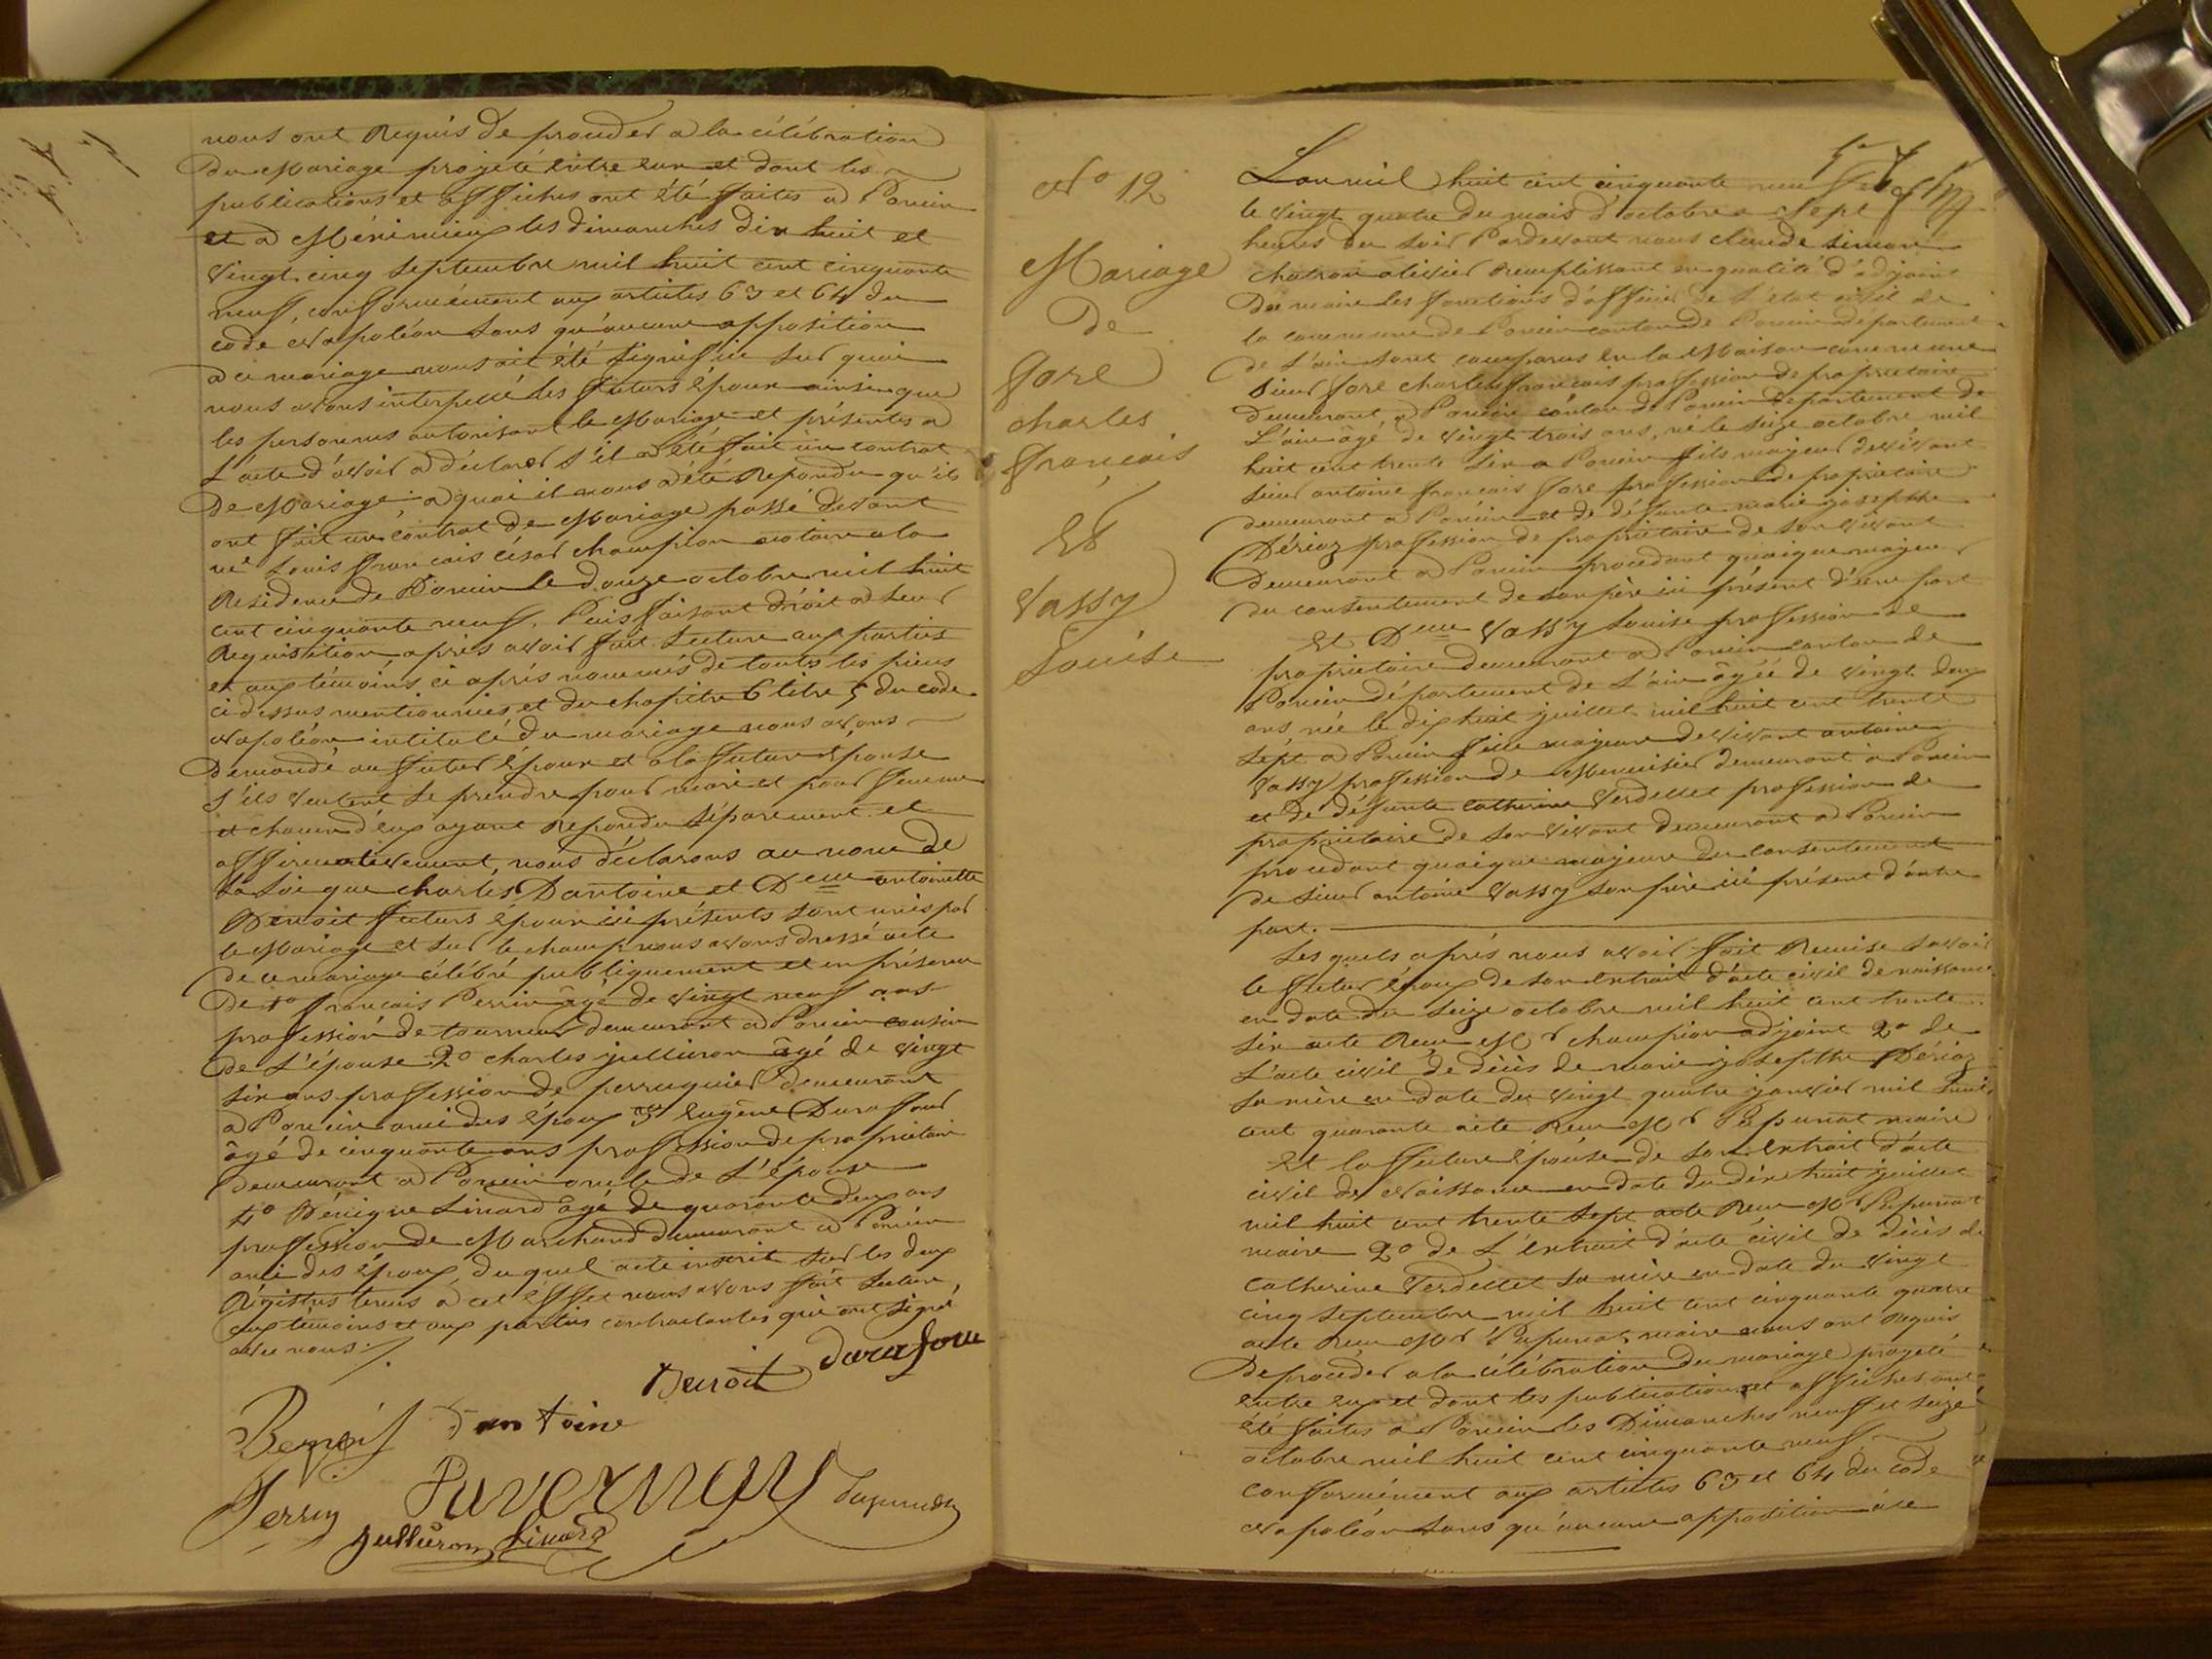 nous ont Requis de proceder a la célébration
Du Mariage projeté entre eux et dont les
publications et affiches ont été faites a Poncin
et a Meximieux les dimanches dix huit et
vingt cinq septembre mil huit cent cinquante
neuf, conformément aux articles 63 et 64 du
code Napoléon sans qu'aucune opposition
a ce mariage nous ait été signifiée sur quoi
nous avons interpellé les futurs époux ainsi que
les personnes autorisant le Mariage et présentes a
L'acte d'avoir a déclarer s'il a été fait un contrat
De Mariage a quoi il nous a été Repondu qu'ils
ont fait un contrat de Mariage passé devant
me Louis francois césar champion notaire a la
Residence de Poncin le douze octobre mil huit
cent cinquante neuf. Puis faisant droit a leur
Requisition après avoir fait Lecture aux parties
et aux témoins ci après nommés de toutes les pièces
ci dessus mentionnées et du chapitre 6 titre 5 du code
Napoléon intitulé du mariage nous avons
Demandé au futur époux et a la future épouse
s'ils veulent se prendre pour mari et pour femme
et chacun d'eux ayant Repondu séparement et
affirmativement, nous déclarons au nom de
la Loi que charles Dantoine et Delle antoinette
Benoit futurs époux ici présents sont unis par
le Mariage et sur le champ nous avons dressé acte
de ce mariage célébré publiquement et en présence
De 1o francois Perrin âgé de vingt neuf ans
profession de tourneur demeurant a Poncin cousin
De L'épouse 2o charles jullieron âgé de vingt
six ans profession de perruquier demeurant
a Poncin ami des époux 3o Eugène Durafour
âgé de cinquante ans profession de propriétaire
demeurant a Poncin oncle de L'épouse
4o Bénigne Linard âgé de quarante deux ans
profession de Marchand demeurant a Poncin
ami des époux, du quel acte inscrit sur les deux
Régistres tenus a cet effet nous avons fait Lecture,
aux témoins et aux parties contractantes qui ont signé
avec nous./.
Benoit Durafour
Benoit Dantoine
Perrin
Jullieron Linard
No 12
Mariage
De
fore
charles
francois
Et
Vassy
Louise
L'an mil huit cent cinquante neuf et
le vingt quatre du mois d'octobre a sept
heures du soir Pardevant nous claude simon
chatron olivier remplissant en qualité d'adjoint
Du maire les fonctions d'officier de l'état civil de
la commune de Poncin canton de Poncin département
de L'ain sont comparus en la Maison commune
sieur fore charles francois profession de propriétaire
demeurant a Poncin canton de Poncin département de
L'ain âgé de vingt trois ans, né le seize octobre mil
huit cent trente six a Poncin fils majeur de vivant
sieur antoine francois fore profession de propriétaire
demeurant a Poncin et de défunte marie josephte
Périoz profession de propriétaire de son vivant
Demeurant a Poncin procédant quoique majeur
du consentement de son père ici présent d'une part
Et Delle Vassy Louise profession de
propriétaire demeurant a Poncin canton de
Poncin département de L'ain âgée de vingt deux
ans, née le dix huit juillet mil huit cent trente
sept a Poncin fille majeure de vivant antoine
Vassy profession de Menuisier demeurant a Poncin
et de défunte catherine Verdellet profession de
propriétaire de son vivant demeurant a Poncin
procedant quoique majeure du consentement
de sieur antoine Vassy son père ici présent d'autre
part.
Les quels après nous avoir fait Remise savoir
le futur époux de son extrait d'acte civil de naissance
en date du seize octobre mil huit cent trente
six acte Reçu Mr champion adjoint 2o de
L'acte civil de décès de marie josephte Périoz
sa mère en date du vingt quatre janvier mil huit
cent quarante acte Reçu Mr Papunat maire
Et la future épouse de son extrait d'acte
civil de Naissance en date du dix huit juillet
mil huit cent trente sept acte Reçu Mr Papunat
maire 2o de L'extrait d'acte civil de décès de
catherine Verdellet sa mère en date du vingt
cinq septembre mil huit cent cinquante quatre
acte Reçu Mr Papunat maire nous ont Requis
De procéder a la célébration du mariage projeté
entre eux et dont les publications et affiches ont
été faites a Poncin les Dimanches neuf et seize
octobre mil huit cent cinquante neuf
conformément aux articles 63 et 64 du code
Napoléon sans qu'aucune opposition a ce